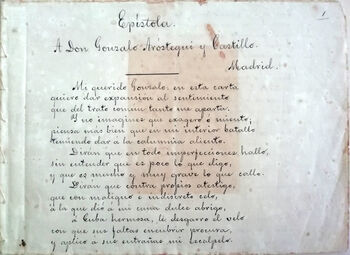 1
Epístola.
A Don Gonzalo Aróstegui y Castillo.
Madrid.
Mi querido Gonzalo: en esta carta
quiero dar expansion al sentimiento
que del trato comun tanto me aparta.
Y no imagines que exagero ó miento;
piensa mas bien que en mi interior batallo
temiendo dar á la calumnia aliento.
Dirán que en todo imperfecciones hallo,
sin entender que es poco lo que digo,
y que es mucho y muy grave lo que callo.
Dirán que contra propios atestiguo,
que con maligno é indiscreto celo,
á la que dió á mi cuna dulce abrigo,
á Cuba hermosa, le desgarro el velo
con que sus faltas encubrir procura,
y aplico á sus entrañas mi escalpelo.